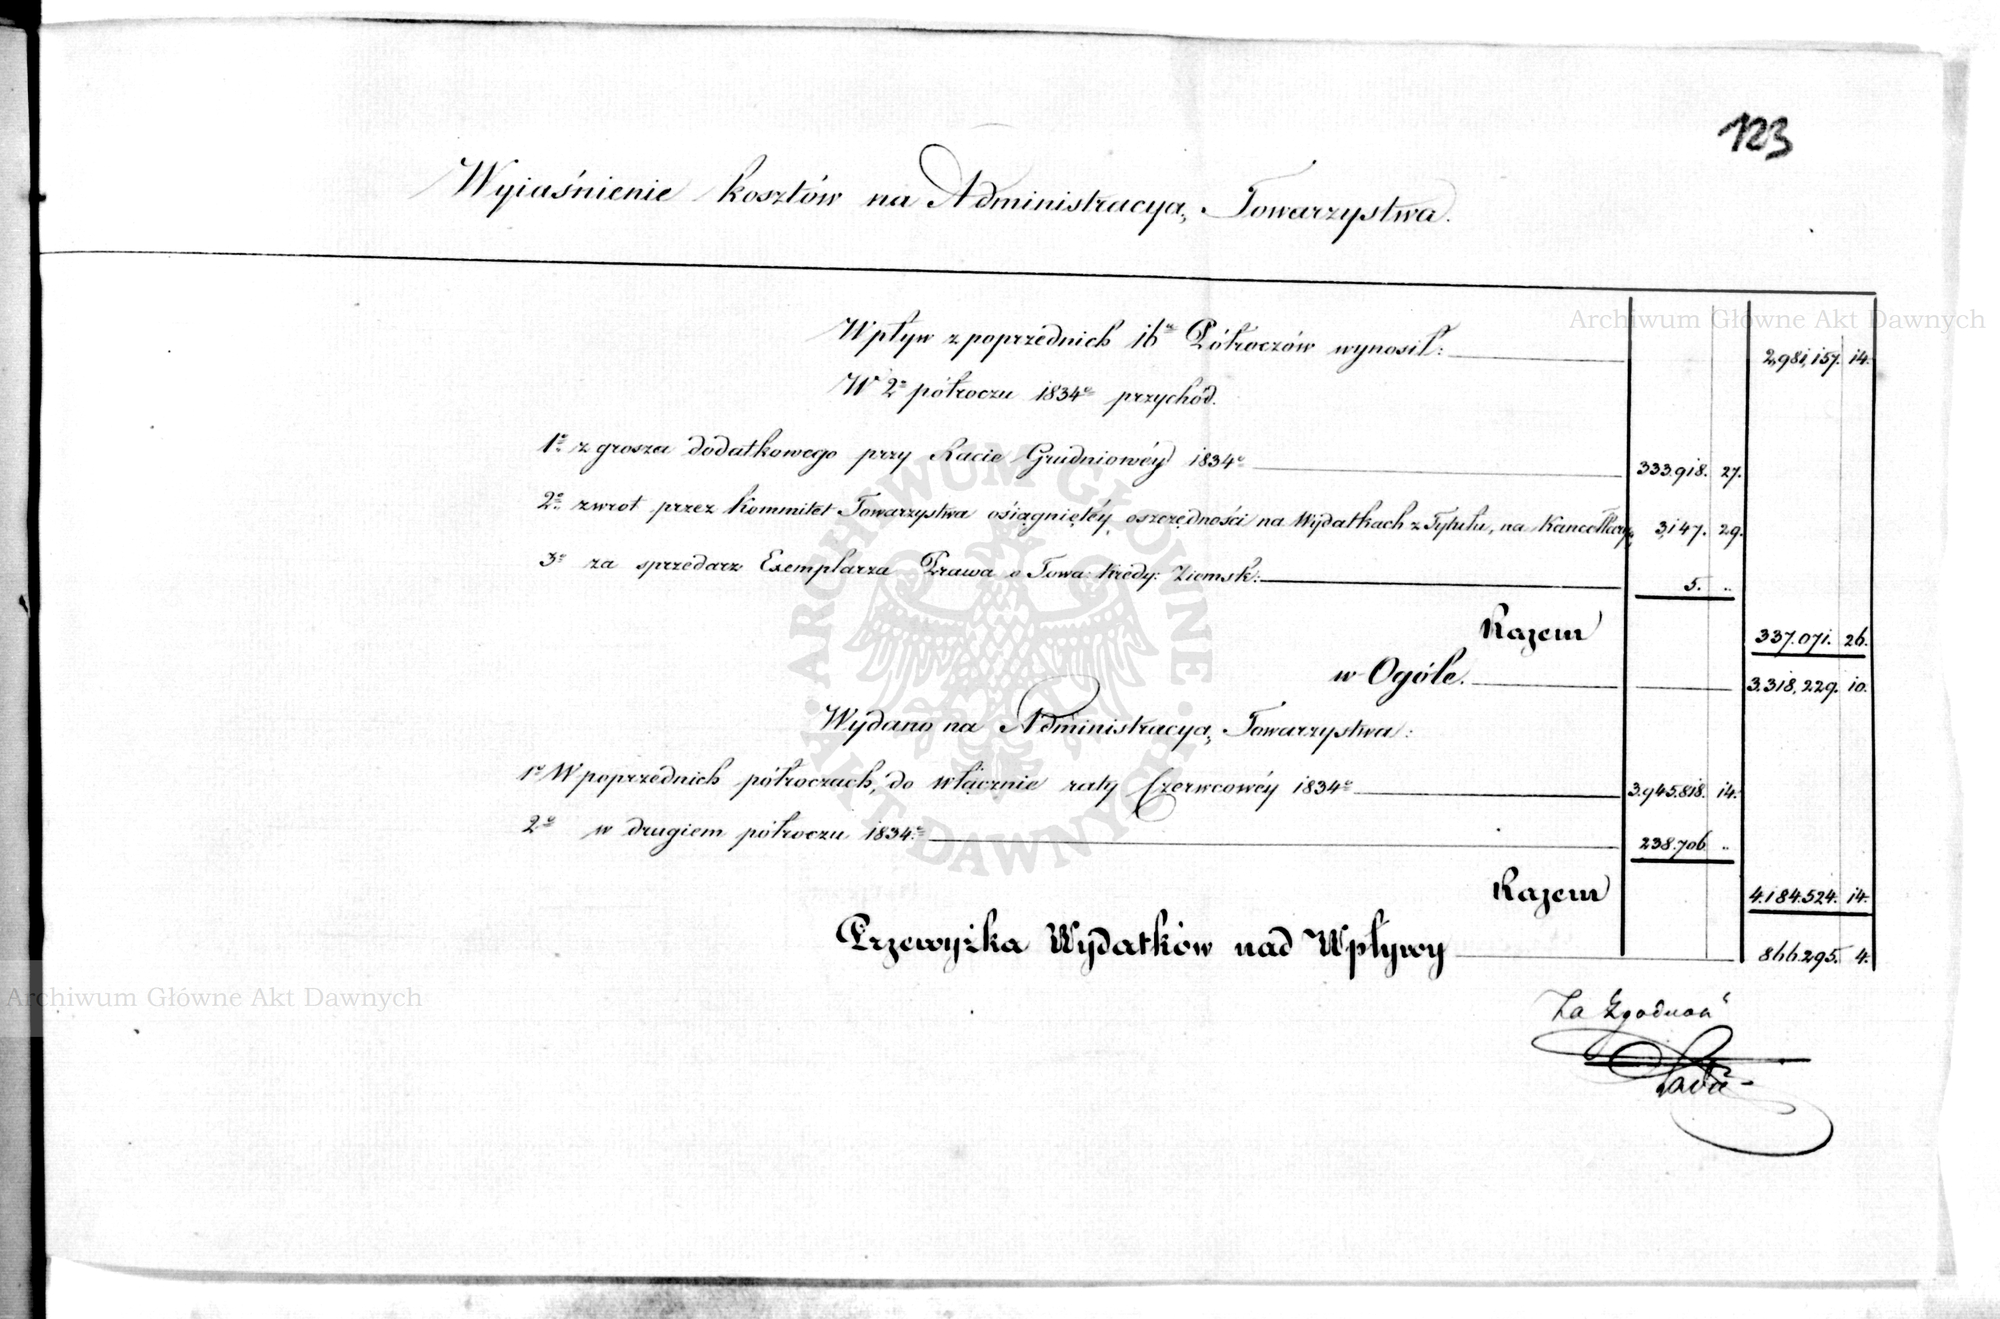 123
Wyiaśnienie kosztów na Administracyą Towarzystwa.
Archiwum Główne Akt Dawnych
Wpływ z poprzednich 16u Półroczów wynosił: 2,981,157. 14.
W 2m półroczu 1834o przychód.
1o z grosza dodatkowego przy Racie Grudniowéy 1834o 333.918. 27.
2o zwrot przez Kommitet Towarzystwa osiągniętéy oszczędności na Wydatkach z Tytułu, na Kancellaryą 3,147. 29.
3o za sprzedarz Exemplarza Prawa o Towa: Kredy: Ziemsk: 5. ..
Razem 337.071. 26.
w Ogóle. 3.318,229. 10.
Wydano na Administracyą Towarzystwa:
1o W poprzednich półroczach, do włącznie raty Czerwcowéy 1834o 3.945.818. 14.
2o w drugiem półroczu 1834o 238.706 ..
Razem 4.184.524. 14.
Przewyżka Wydatków nad Wpływy 866.295. 4.
Archiwum Główne Akt Dawnych
Za Zgodność
ARCHIWUM GŁÓWNE AKT DAWNYCH